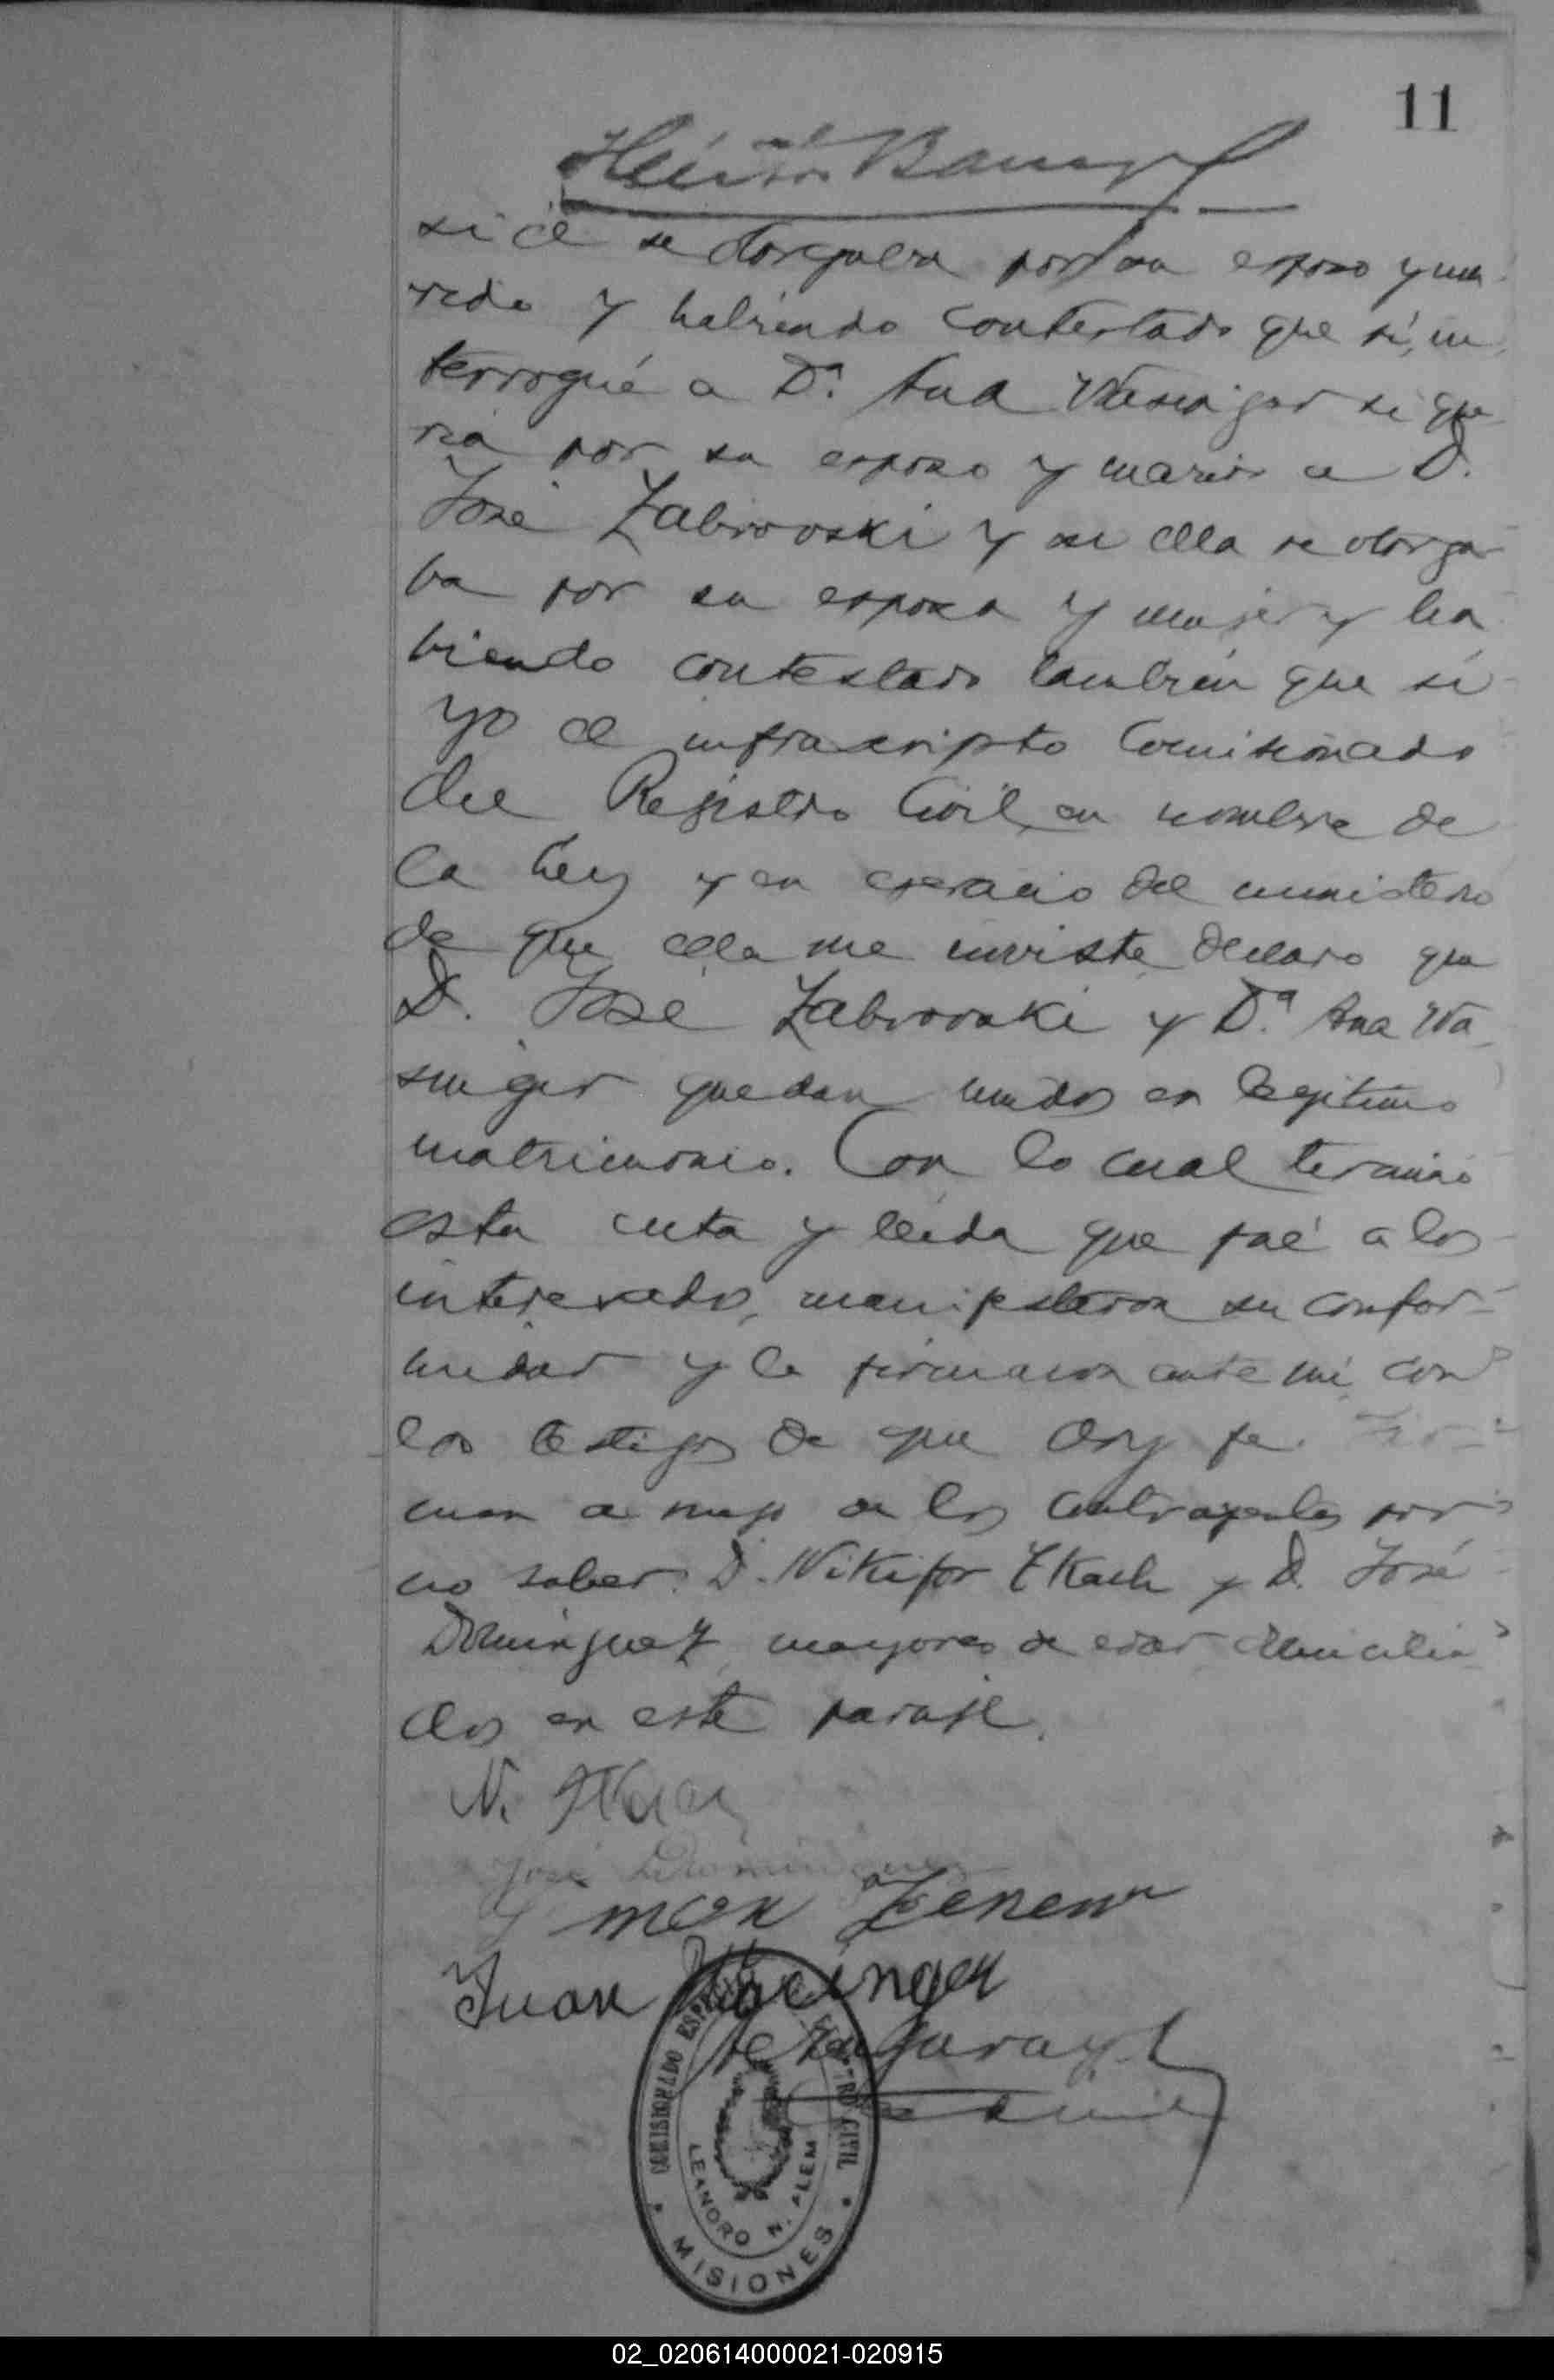 11
si él se otorgaba por su esposo y ma
rido y habiendo contestado que sí, in
terrogué a Dª. Ana Wasinger si que
ría por su esposo y marido a D.
José Zabrowski y si ella se otorga
ba por su esposa y mujer y ha
biendo contestado también que sí
yo el infrascripto Comisionado
del Registro Civil, en nombre de
la Ley y en ejercicio del ministerio
de que ella me inviste declaro que
D. José Zabrowski y Dª. Ana Wa
singer quedan unidos en legítimo
matrimonio. Con lo cual terminó
esta acta y leída que fué a los
interesados, manifestaron su confor-
midad y la firmaron ante mí con
los testigos de que doy fe. Fir-
man a ruego de los contrayentes por
no saber: D. Nikifor Tkach y D. José
Dominguez mayores de edad domicilia
dos en este paraje.
N. Tkacz
José Dominguez
Juan Wacinger
COMISIONADO ESPECIAL REGISTRO CIVIL
LEANDRO N. ALEM
MISIONES
02_020614000021-020915